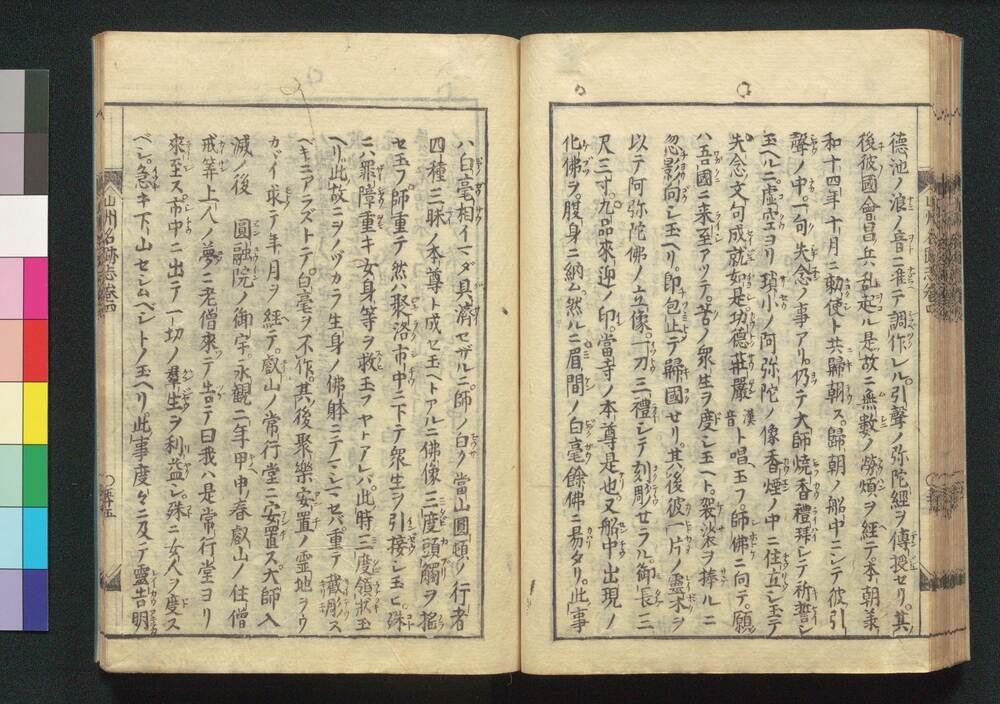 德池ノ浪ノ音ニ准テ調作レル引聲ノ弥陀經ヲ傳授セリ其
後彼國會昌兵乱起ル是故ニ無數ノ勞煩ヲ經テ本朝承
和十四年十月ニ勅使ト共歸朝ス歸朝ノ船中ニシテ彼引
聲ノ中一句失念ノ事アリ仍テ大師焼香禮拜シテ祈誓シ
玉ヘルニ虚空ヨリ瑣小ノ阿弥陀ノ像香煙ノ中ニ住立シ玉テ
失念ノ文句成就如是功德莊嚴漢音ト唱玉フ師佛ニ向テ願
ハ吾國ニ来至アツテ苦ノ衆生ヲ度シ玉ヘト袈裟ヲ捧ルニ
忽影向シ玉ヘリ即包止テ歸國セリ其後彼一片ノ靈木ヲ
以テ阿弥陀佛ノ立像一刀三禮シテ刻彫ノセラル御長三
尺三寸九品來迎ノ印當寺ノ本尊是也又船中出現ノ
化佛ヲ腹身ニ納ム然ルニ眉間ノ白毫餘佛ニ易タリ此事
山州名跡志巻四
ハ白毫相イマダ具濟セザルニ師ノ白ク當山圓頓ノ行者
四種三昧ノ本尊ト成セ玉ヘトアルニ佛像三度頭觸ヲ搖
セ玉フ師重テ然ハ聚洛市中ニ下テ衆生ヲ引接シ玉ヒ殊
ニハ罪障重キ女身等ヲ救玉フヤトアレバ此時三度領状玉
ヘリ此故ニヲノヅカラ生身ノ佛躰ニテマシマセバ重テ截彫ス
ベキニアラズトテ白毫ヲ不作其後聚樂安置ノ霊地ヲウ
カヾイ求テ年月ヲ經テ叡山ノ常行堂ニ安置ス大師入
滅ノ後 圓融院ノ御宇永観二年甲申春叡山ノ住僧
戒筭上人ノ夢ニ老僧來テ告テ曰我ハ是常行堂ヨリ
來至ス市中ニ出テ一切ノ羣生ヲ利益シ殊ニ女人ヲ度ス
ベシ急キ下山セシムベシトノ玉ヘリ此事度々ニ及テ靈告明
山州名跡志巻四